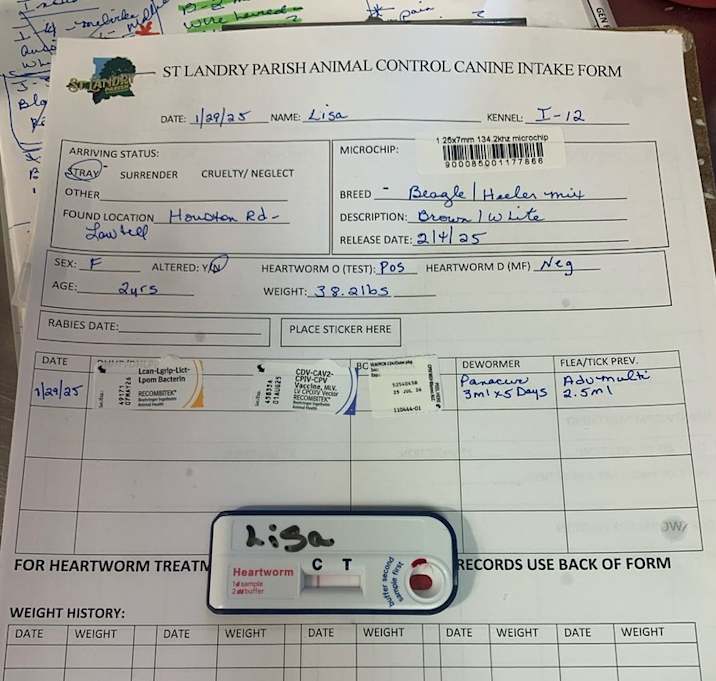 ST LANDRY
ST LANDRY PARISH ANIMAL CONTROL CANINE INTAKE FORM
DATE: 1/29/25 NAME: Lisa KENNEL: I-12
ARRIVING STATUS:
STRAY SURRENDER CRUELTY/ NEGLECT
OTHER
FOUND LOCATION Houston Rd -
Lawtell
MICROCHIP:
1.25x7mm 134.2khz microchip
900085001177866
BREED - Beagle / Heeler mix
DESCRIPTION: Brown / White
RELEASE DATE: 2/4/25
SEX: F ALTERED: Y/N HEARTWORM O (TEST): Pos HEARTWORM D (MF) Neg
AGE: 2yrs WEIGHT: 38.2lbs
RABIES DATE: PLACE STICKER HERE
DATE BC DEWORMER FLEA/TICK PREV.
1/29/25
Lcan-Lgrip-Lict-
Lpom Bacterin
RECOMBITEK
49171
07MAY26
CDV-CAV2-
CPIV-CPV
Vaccine, MLV,
RECOMBITEK
45835A
01AUG25
110444-01
Panacur
3ml x 5 Days
Advmulti
2.5ml
JW
FOR HEARTWORM TREATM RECORDS USE BACK OF FORM
Lisa
C T
Heartworm
1 sample
2 buffer
buffer second
sample first
WEIGHT HISTORY:
DATE WEIGHT DATE WEIGHT DATE WEIGHT DATE WEIGHT DATE WEIGHT